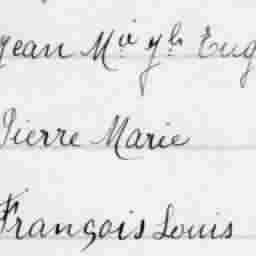 Jean M.ie Y.h Eug
Pierre Marie
François Louis